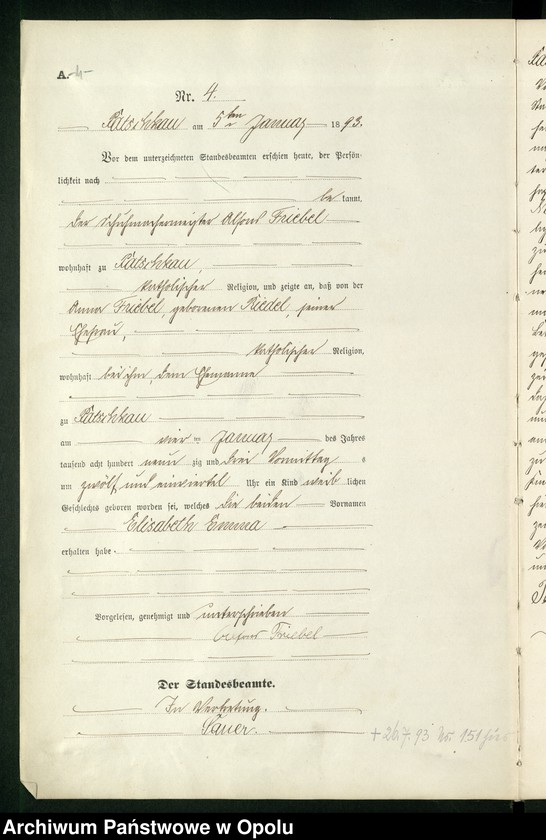 A.
Nr. 4.
Patschkau am 5ten Januar 1893.
Vor dem unterzeichneten Standesbeamten erschien heute, der Persön-
lichkeit nach
be kannt,
der Schuhmachermeister Alfons Friebel
wohnhaft zu Patschkau,
katholischer Religion, und zeigte an, daß von der
Anna Friebel, geborenen Riedel, seiner
Ehefrau,
katholischer Religion,
wohnhaft bei ihm, dem Ehemanne
zu Patschkau
am vier ten Januar des Jahres
tausend acht hundert neun zig und drei Vormittag s
um zwölf und einviertel Uhr ein Kind weib lichen
Geschlechts geboren worden sei, welches die beiden Vornamen
Elisabeth Emma
erhalten habe.
Vorgelesen, genehmigt und unterschrieben
Alfons Friebel
Der Standesbeamte.
In Vertretung.
+ 26.7.93 No 151
Archiwum Państwowe w Opolu